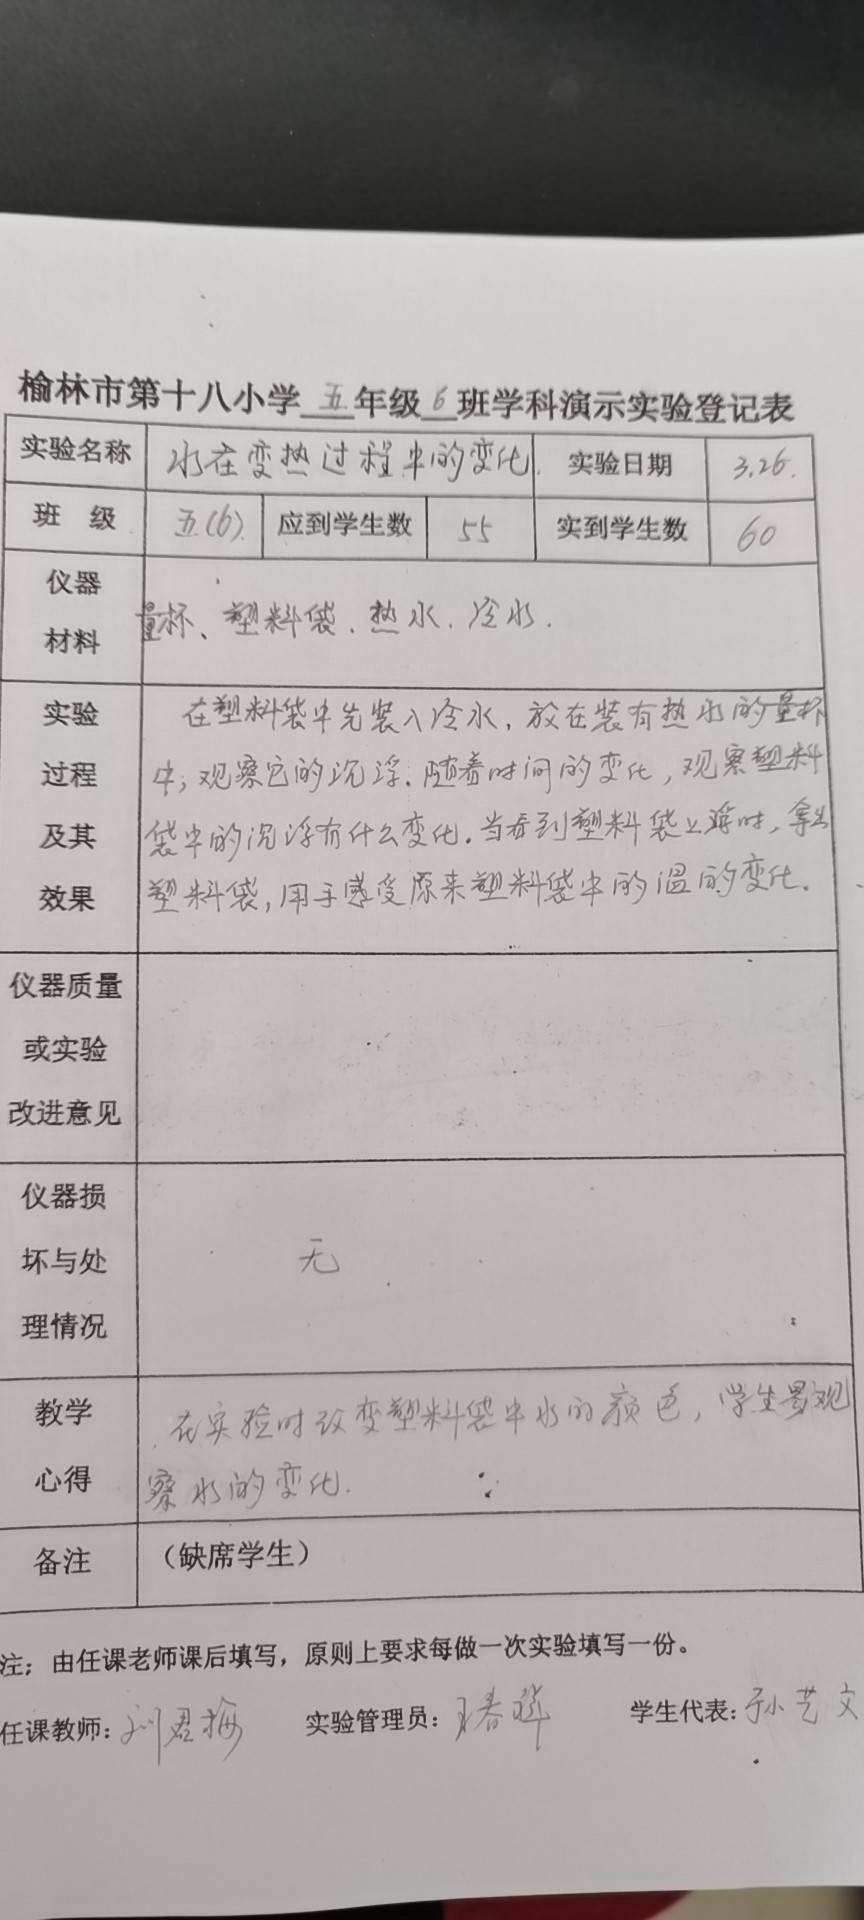 榆林市第十八小学 五 年级 6 班学科演示实验登记表
实验名称 水在变热过程中的变化. 实验日期 3.26.
班 级 五(6). 应到学生数 55 实到学生数 60
仪器
材料
量杯、塑料袋、热水.冷水.
实验
过程
及其
效果
在塑料袋中先装入冷水,放在装有热水的量杯
中,观察它的沉浮.随着时间的变化,观察塑料
袋中的沉浮有什么变化.当看到塑料袋上浮时,拿出
塑料袋,用手感受原来塑料袋中的温的变化.
仪器质量
或实验
改进意见
仪器损
坏与处
理情况
无
教学
心得
在实验时改变塑料袋中水的颜色,学生易观
察水的变化.
备注 （缺席学生）
注；由任课老师课后填写，原则上要求每做一次实验填写一份。
任课教师: 刘君梅 实验管理员: 王春 学生代表: 孙艺文